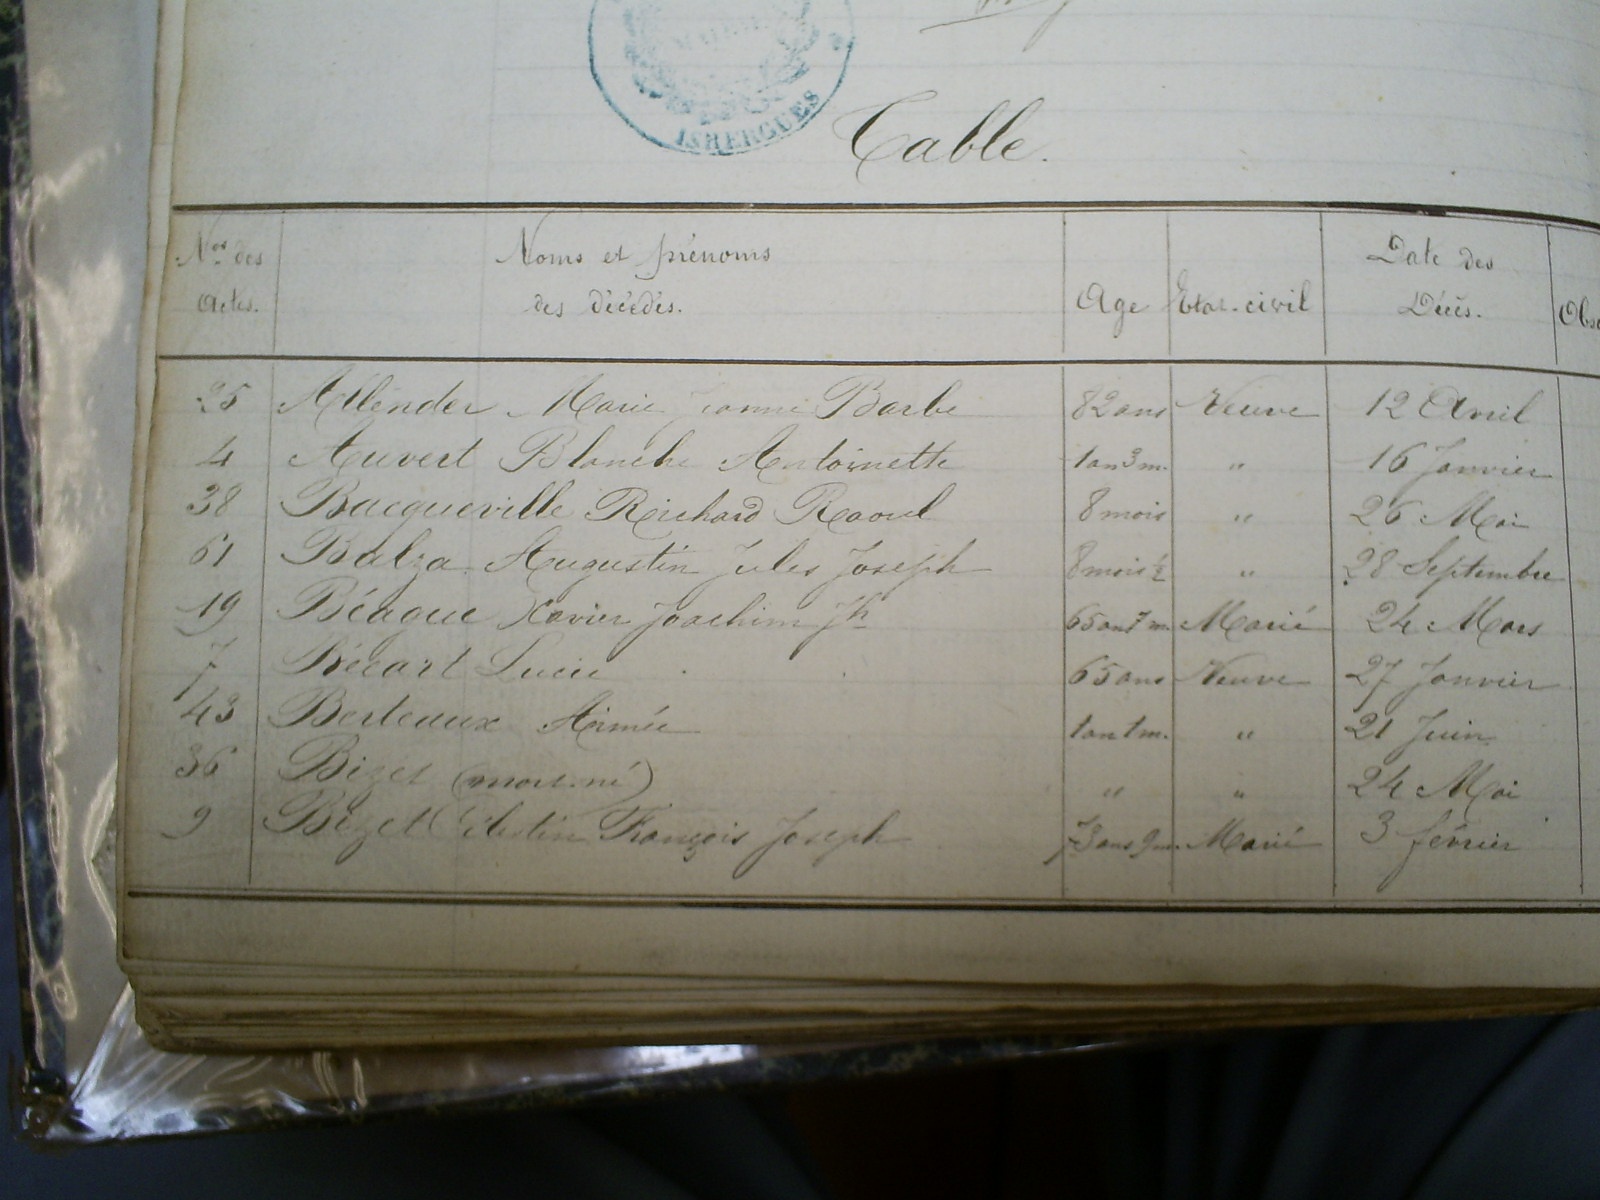 MAIRIE
ISBERGUES
Table.
Nos des Actes.
Noms et prénoms des décédés.
Age
Etat-civil
Date des Décès.
Obse
25 Allender Marie Jeanne Barbe 82 ans Veuve 12 Avril
4 Auvert Blanche Antoinette 1 an 3 m. " 16 Janvier
38 Bacqueville Richard Raoul 8 mois " 26 Mai
61 Balza Augustin Jules Joseph 8 mois ½ " 28 Septembre
19 Béague Xavier Joachim Jh 65 ans 7 m. Marié 24 Mars
7 Bécart Lucie 65 ans Veuve 27 Janvier
43 Berteaux Aimée 1 an 1 m. " 21 Juin
36 Bizet (mort-né) " " 24 Mai
9 Bizet Célestin François Joseph 73 ans 9 m. Marié 3 février